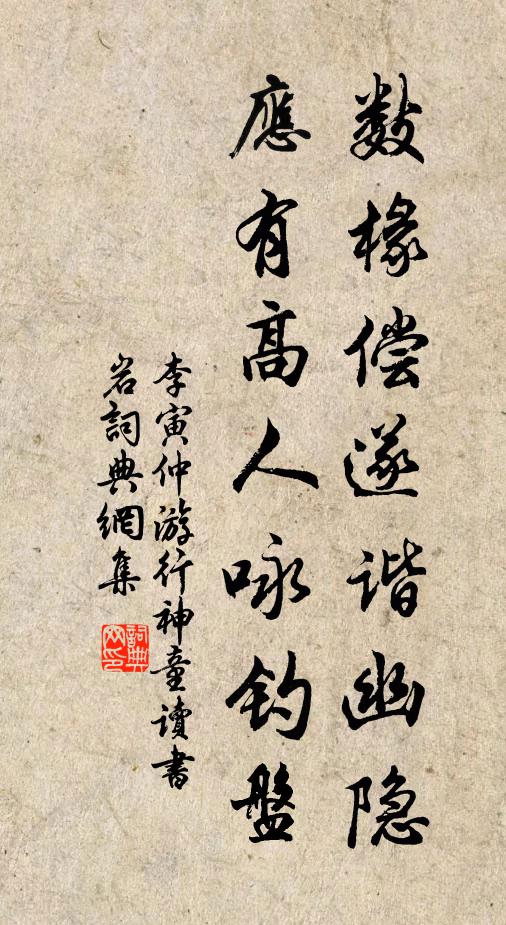 数椽偿遂谐幽隐
應有高人咏钓盤
李寅仲游行神童讀書
岩詞典網集
詞典网印